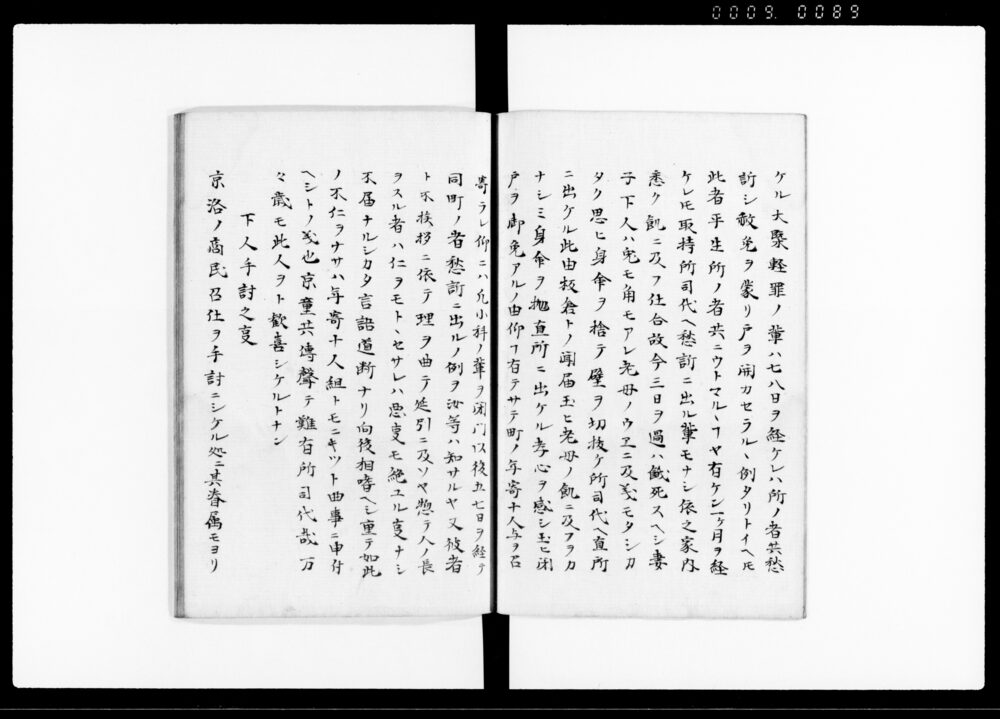 0009. 0089
ケル大槩軽罪ノ輩ハ七八日ヲ経ケレハ所ノ者共愁
訴シ赦免ヲ蒙リ戸ヲ開カセラルヽ例タリトイヘ𪜈
此者平生所ノ者共ニウトマルヽヿヤ有ケン一ヶ月ヲ経
ケレ𪜈取持所司代ヘ愁訴ニ出ル輩モナシ依之家内
悉ク飢ニ及フ仕合故今三日ヲ過ハ餓死スヘシ妻
子下人ハ兎モ角モアレ老母ノウヱニ及義モタシカ
タク思ヒ身命ヲ捨テ壁ヲ切抜ケ所司代ヘ直所
ニ出ケル此由板倉トノ聞届玉ヒ老母ノ飢ニ及フヲカ
ナシミ身命ヲ抛直所ニ出ケル孝心ヲ感シ玉ヒ閉
戸ヲ御免アルノ由仰付有テサテ町ノ年寄十人与ヲ召
寄ラレ仰ニハ凡小科ノ輩ヲ閉門以後五七日ヲ経テ
同町ノ者愁訴ニ出ルノ例ヲ汝等ハ知サルヤ又彼者
ト不挨拶ニ依テ理ヲ曲テ延引ニ及ソヤ惣テ人ノ長
ヲスル者ハ仁ヲモトヽセサレハ悪叓モ絶ユル叓ナシ
不届ナルシカタ言語道断ナリ向後相嗜ヘシ重テ如此
ノ不仁ヲナサハ年寄十人組トモニキツト曲事ニ申付
ヘシトノ義也京童共傳聲テ難有所司代哉万
々歳モ此人ヲト歓喜シケルトナン
下人手討之叓
京洛ノ商民召仕ヲ手討ニシケル処ニ其眷属モヨリ